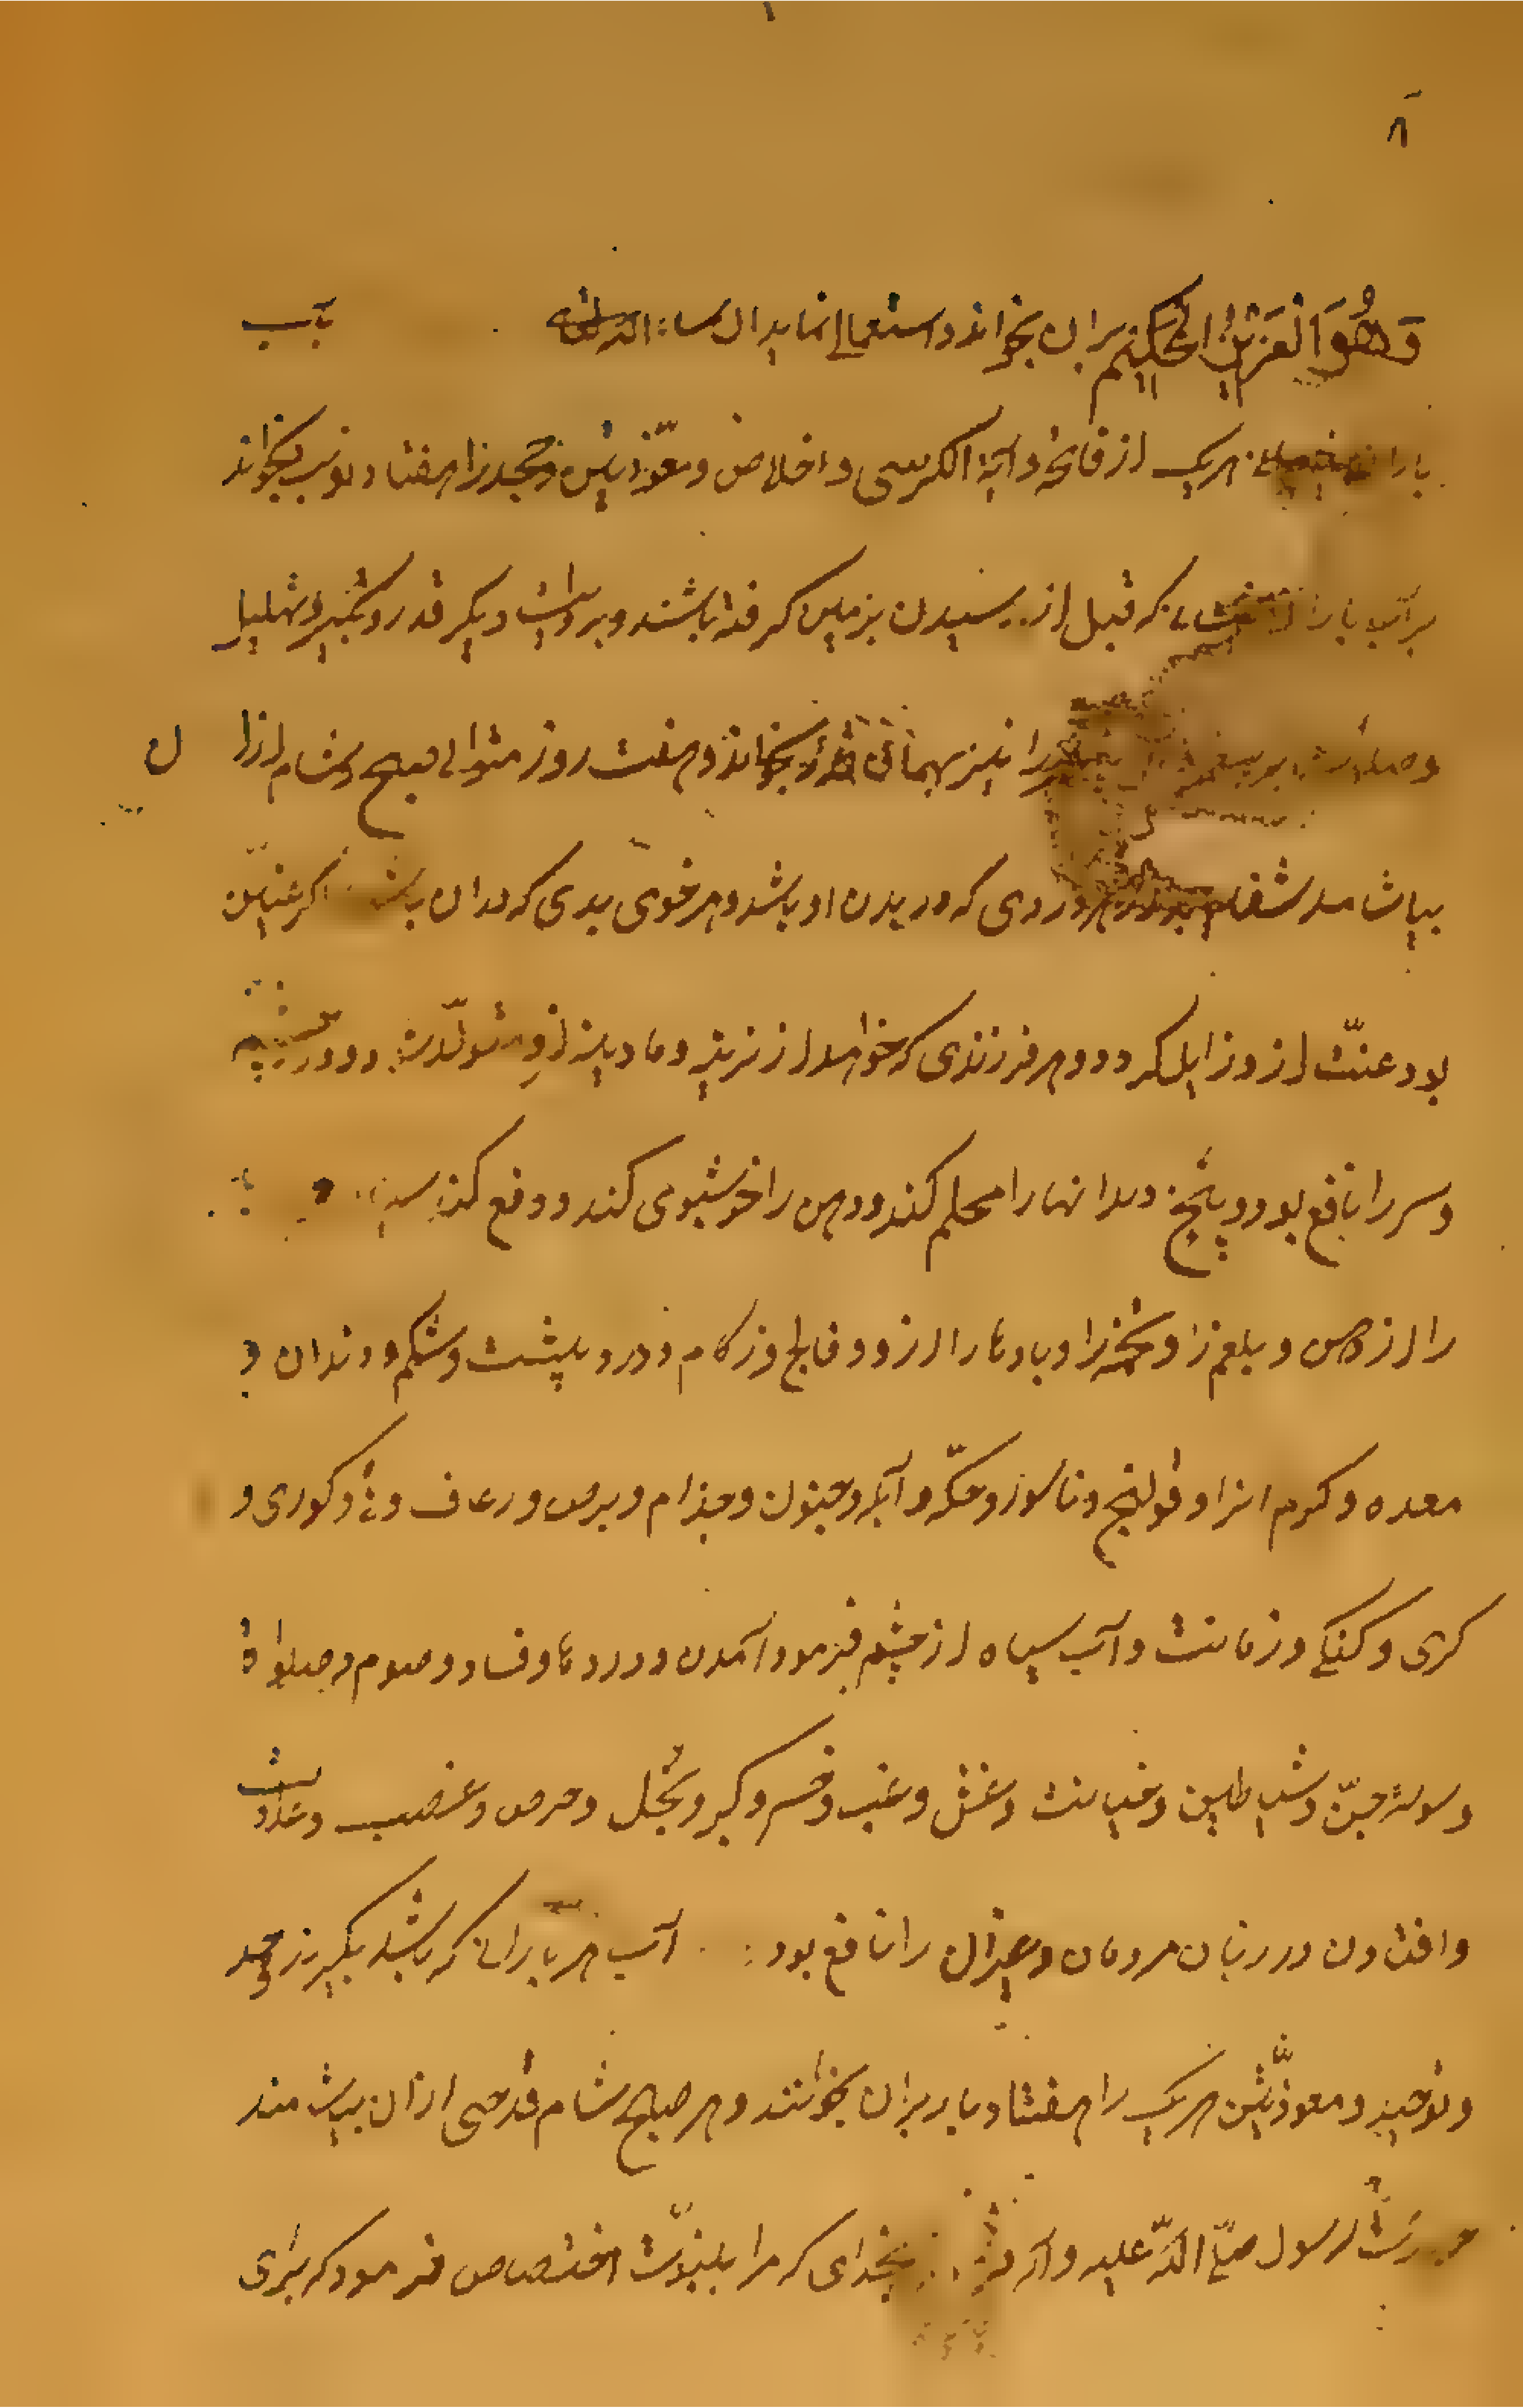 ۸
وَهُوَ الْعَزِيزُ الْحَكِيمُ بران بخواند و استعمال نماید ان شاء الله تعالی آب
باران هریک از فاتحه و آیة الکرسی و اخلاص و معوّذتین و جحد را هفتاد نوبت بخواند
بر آب باران که قبل از رسیدن بزمین گرفته باشند و بروایت دیگر قدر و تکبیر و تهلیل
و صلوات بر پیغمبر را نیز بهمان قدر بخواند و هفت روز متوالی صبح و شام ازان
بیاشامد شفا هر دردی که در بدن او باشد و هر خوی بدی که دران باشد اگر عنین
بود عنّت ازو زایل گردد و هر فرزندی که خواهد از نرینه و مادینه ازو متولّد شود و درد چشم
و سر را نافع بود و بیخ دندانها را محکم کند و دهن را خوشبوی کند و دفع کند
را از و بلغم را و تخمه را و بادها را ازو و فالج و زکام و درد پشت و شکم و دندان و
معده و کرم انرا و قولنج و ناسور و حکّه و آبله و جنون و جذام و برص و رعاف و قی و کوری و
کری و گنگی و زمانت و آب سیاه از چشم فرود آمدن و دردها و فساد و صوم و صلوة
و وسوسه جنّ و شیاطین و خیانت و غش و غیب و خشم و کبر و بخل و حرص و غضب و عداوت
و افتادن در زبان مردمان و را نافع بود آب هر بارانی که باشد بگیرند و حمد
و توحید و معوذّتین هریک را هفتاد بار بران بخوانند و هر صباح و شام قدحی ازان بیاشامند
حضرت رسول صلّی اللّه علیه و آله بخدای که مرا بنبوّت اختصاص فرمود که برای